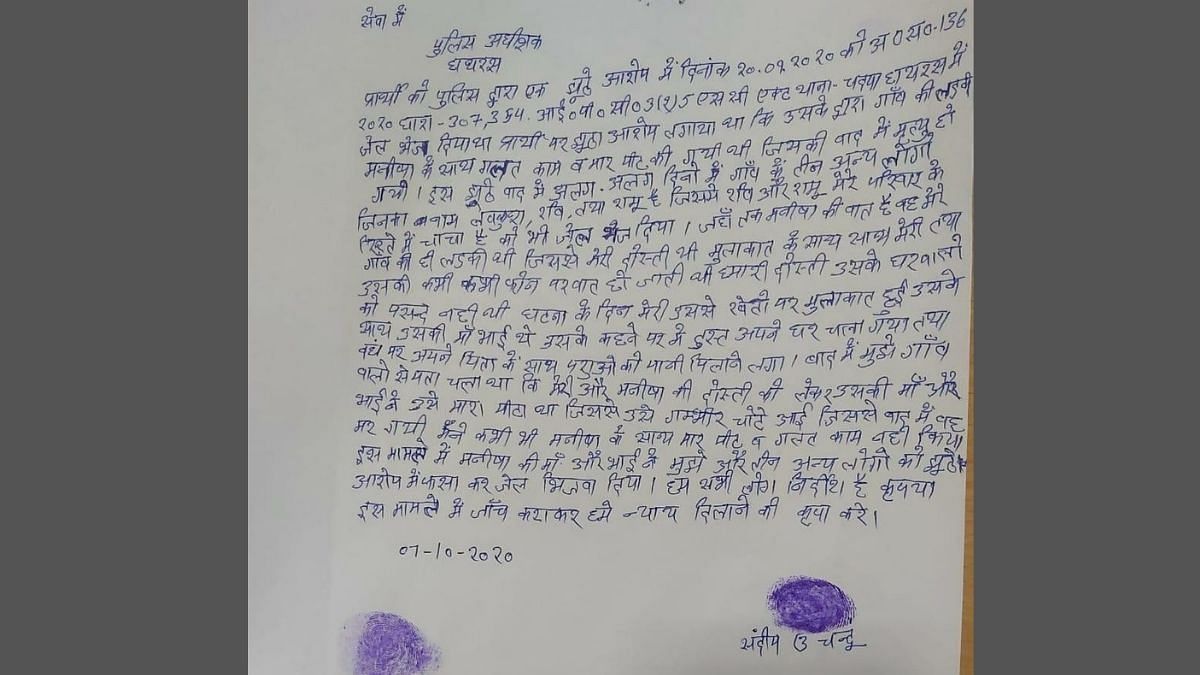 सेवा में
पुलिस अधीक्षक
हाथरस
प्रार्थी को पुलिस द्वारा एक झूठे आरोप में दिनांक 20.09.2020 को अ0स0-136
2020 धारा-307,354. आई0पी0सी0 3(2)5 एस सी एक्ट थाना-चन्दपा हाथरस में
जेल भेज दिया था प्रार्थी पर झूठा आरोप लगाया था कि उसके द्वारा गाँव की लडकी
मनीषा के साथ गलत काम व मार पीट की गयी थी जिसकी बाद में मृत्यु हो
गयी। इस झूठे वाद में अलग-अलग दिनो में गाँव के तीन अन्य लोगो
जिनका नाम लवकुश, रवि, तथा रामू है जिसमे रवि और रामू मेरे परिवार के
रिश्ते में चाचा है को भी जेल भेज दिया। जहाँ तक मनीषा की बात है वह मेरे
गाँव की ही लडकी थी जिससे मेरी दोस्ती थी मुलाकात के साथ साथ मेरी तथा
उसकी कभी कभी फोन पर बात हो जाती थी हमारी दोस्ती उसके घरवालो
को पसन्द नही थी घटना के दिन मेरी उससे खेतो पर मुलाकात हुई उसके
साथ उसकी माँ भाई थे उसके कहने पर मे तुरन्त अपने घर चला गया तथा
वंहा पर अपने पिता के साथ पशुओ को पानी पिलाने लगा। बाद में मुझे गाँव
वालो से पता चला था कि मेरी और मनीषा की दोस्ती को लेकर उसकी माँ और
भाई ने उसे मारा पीटा था जिससे उसे गम्भीर चोटे आई जिससे बाद में वह
मर गयी मैंने कभी भी मनीषा के साथ मार पीट व गलत काम नही किया
इस मामले में मनीषा की माँ और भाई ने मुझे और तीन अन्य लोगो को झूठे
आरोप में फसा कर जेल भिजवा दिया। हम सभी लोग निर्दोश है कृपया
इस मामले में जाँच कराकर हमे न्याय दिलाने की कृपा करे।
07-10-2020
संदीप उ चन्दू